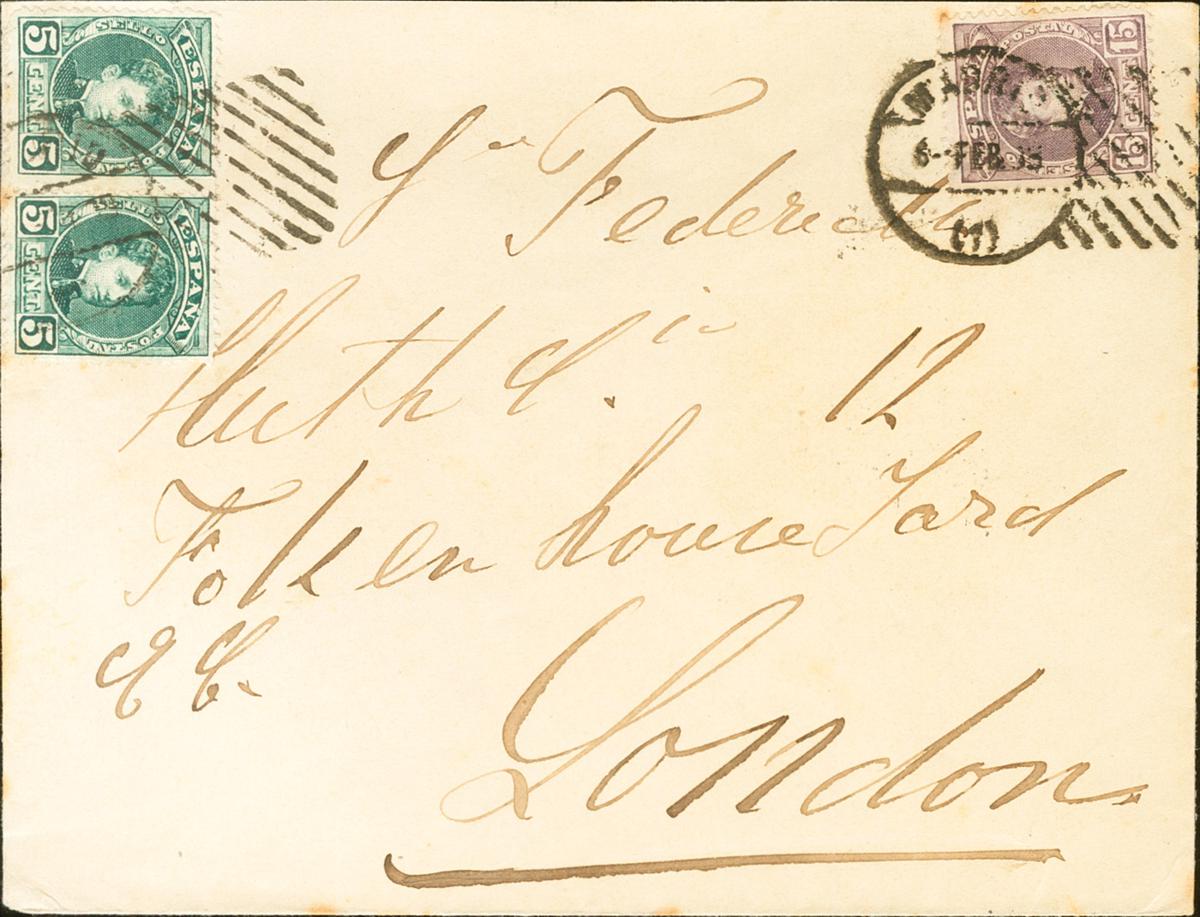 5 SELLO ESPAÑA
CENT 5 POSTAL
5 SELLO ESPAÑA
CENT 5 POSTAL
POSTAL 15
ESPAÑA 15 CENT
6-FEB
(1)
Sr Federico
Huth Cia 12
Tokenhouse Yard
E C.
London